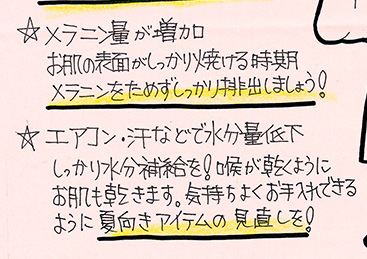 ☆メラニン量が増加
お肌の表面がしっかり焼ける時期
メラニンをためずしっかり排出しましょう!
☆エアコン・汗などで水分量低下
しっかり水分補給を!喉が乾くように
お肌も乾きます。気持ちよくお手入れできる
ように夏向きアイテムの見直しを!